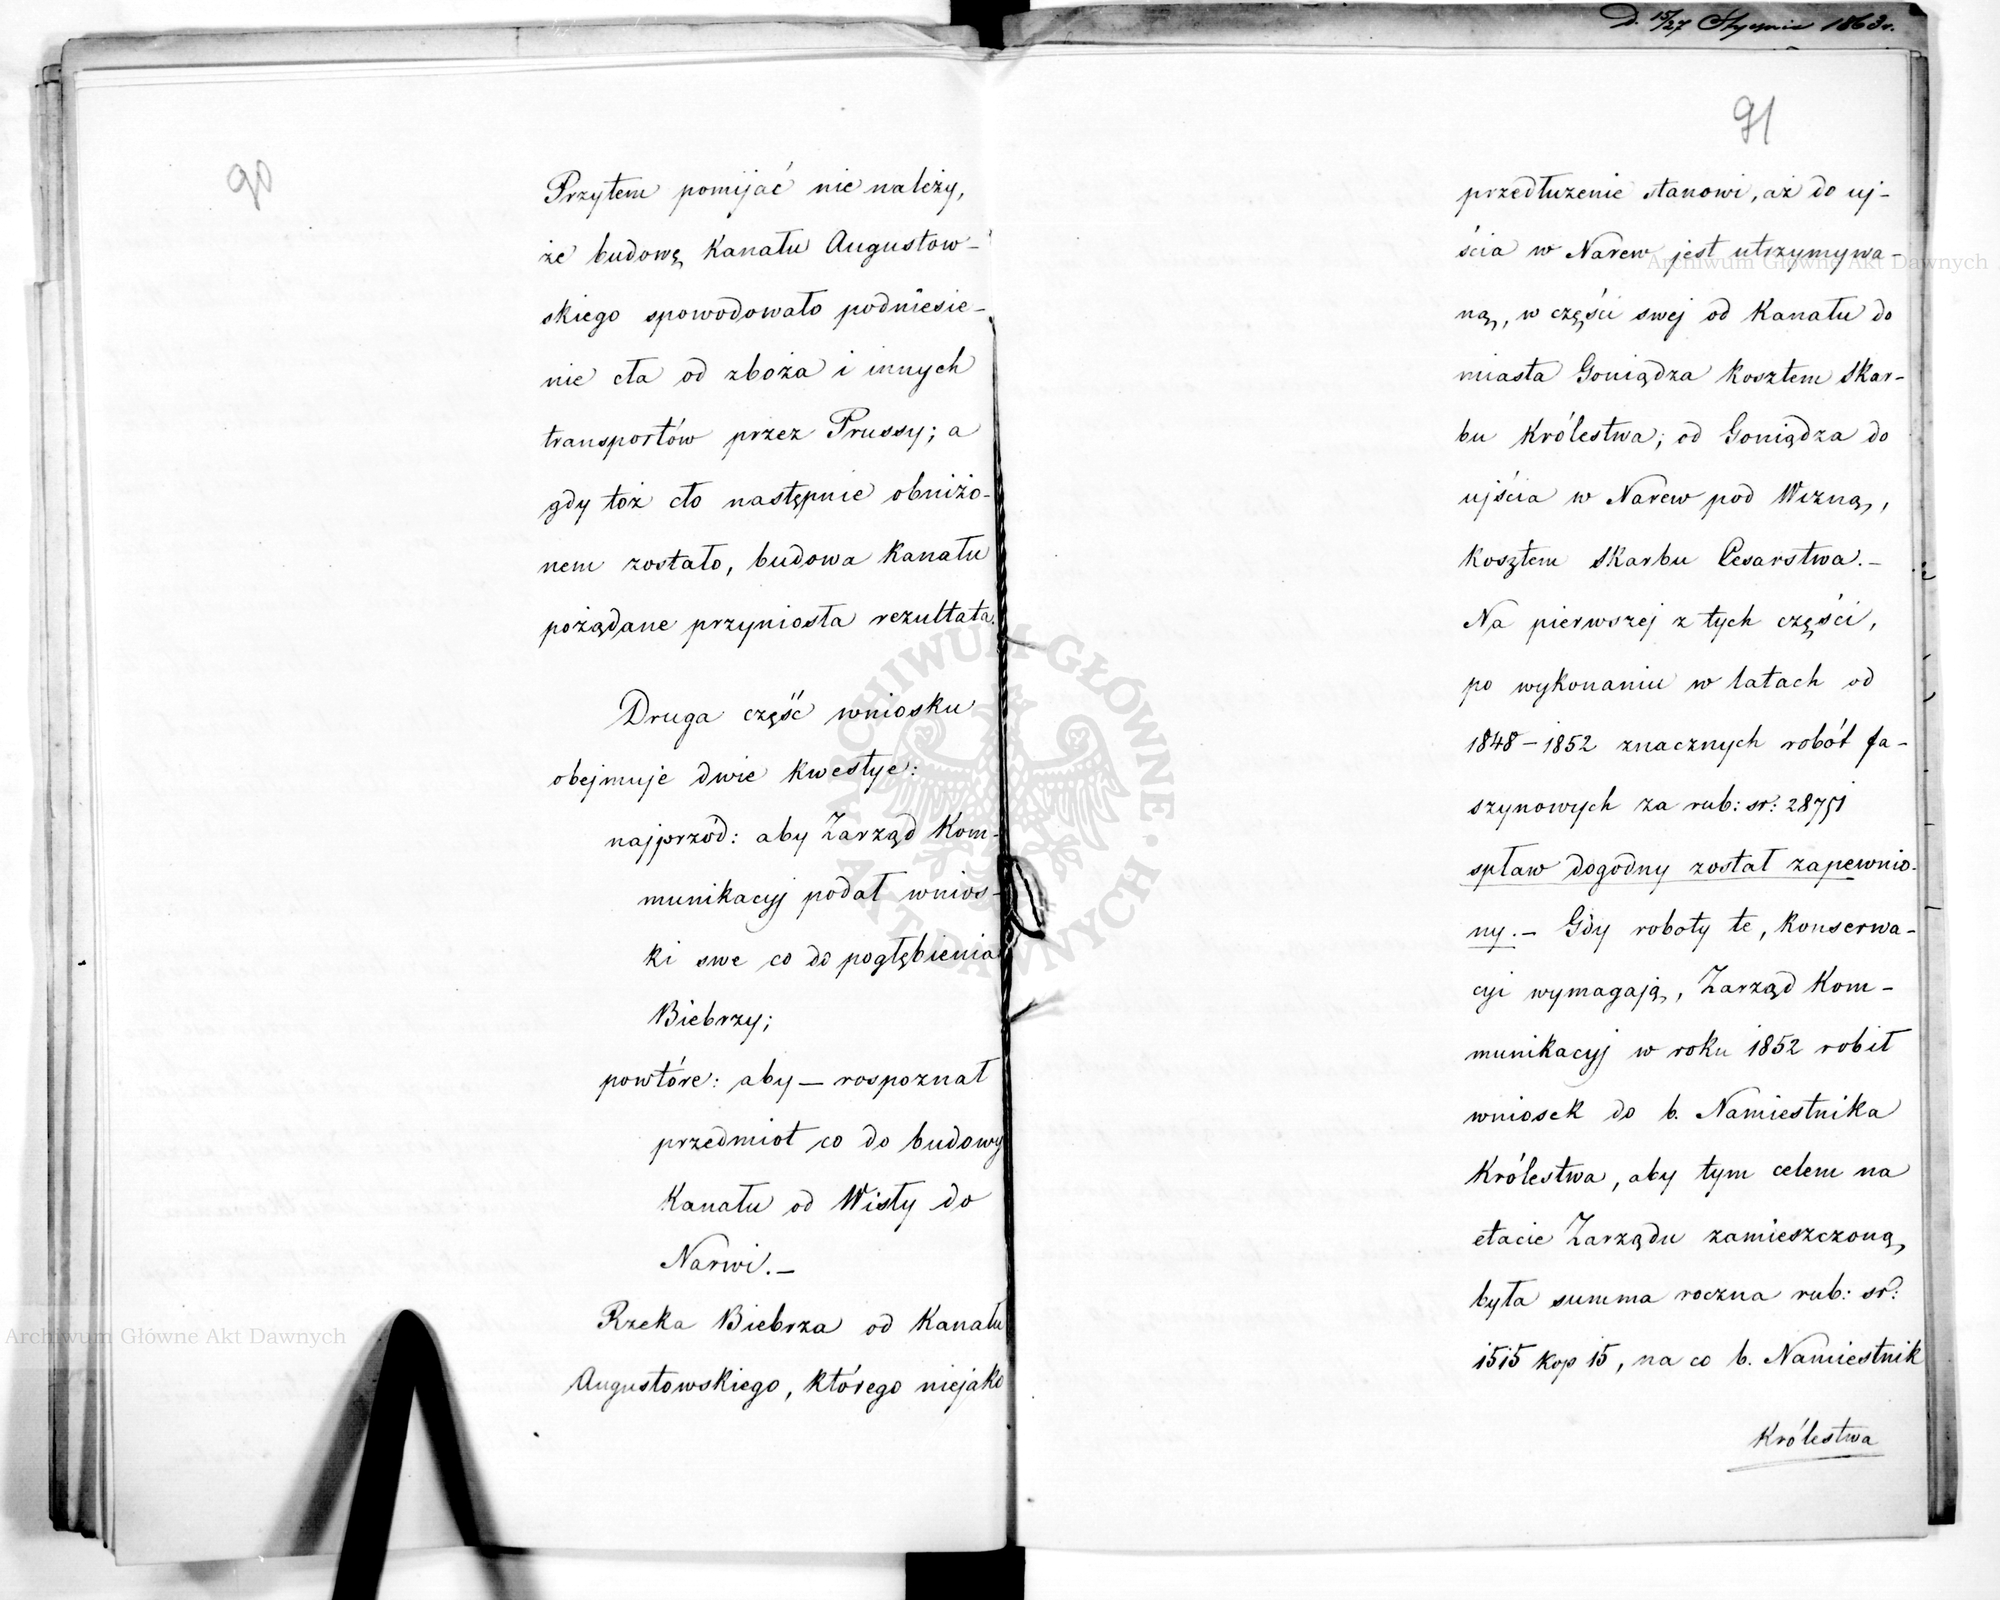 D. 15/27 Stycznia 1863 r.
90
Przytem pomijać nie należy,
że budowę Kanału Augustow-
skiego spowodowało podniesie-
nie cła od zboża i innych
transportów przez Prussy; a
gdy toż cło następnie obniżo-
nem zostało, budowa Kanału
pożądane przyniosła rezultata.
Druga część wniosku
obejmuje dwie kwestye:
najprzód: aby Zarząd Kom-
munikacyj podał wnios-
ki swe co do pogłębienia
Biebrzy;
powtóre: aby — rospoznał
przedmiot co do budowy
Kanału od Wisły do
Narwi. —
Rzeka Biebrza od Kanału
Augustowskiego, którego niejako
91
przedłużenie stanowi, aż do uj-
ścia w Narew jest utrzymywa-
ną, w części swej od Kanału do
miasta Goniądza kosztem Skar-
bu Królestwa; od Goniądza do
ujścia w Narew pod Wizną,
kosztem Skarbu Cesarstwa. —
Na pierwszej z tych części,
po wykonaniu w latach od
1848 — 1852 znacznych robót fa-
szynowych za rub: sr: 28751
spław dogodny został zapewnio-
ny. — Gdy roboty te, Konserwa-
cyi wymagają, Zarząd Kom-
munikacyj w roku 1852 robił
wniosek do b. Namiestnika
Królestwa, aby tym celem na
etacie Zarządu zamieszczoną
była summa roczna rub: sr:
1515 kop 15, na co b. Namiestnik
Królestwa
Archiwum Główne Akt Dawnych
Archiwum Główne Akt Dawnych
ARCHIWUM GŁÓWNE AKT DAWNYCH